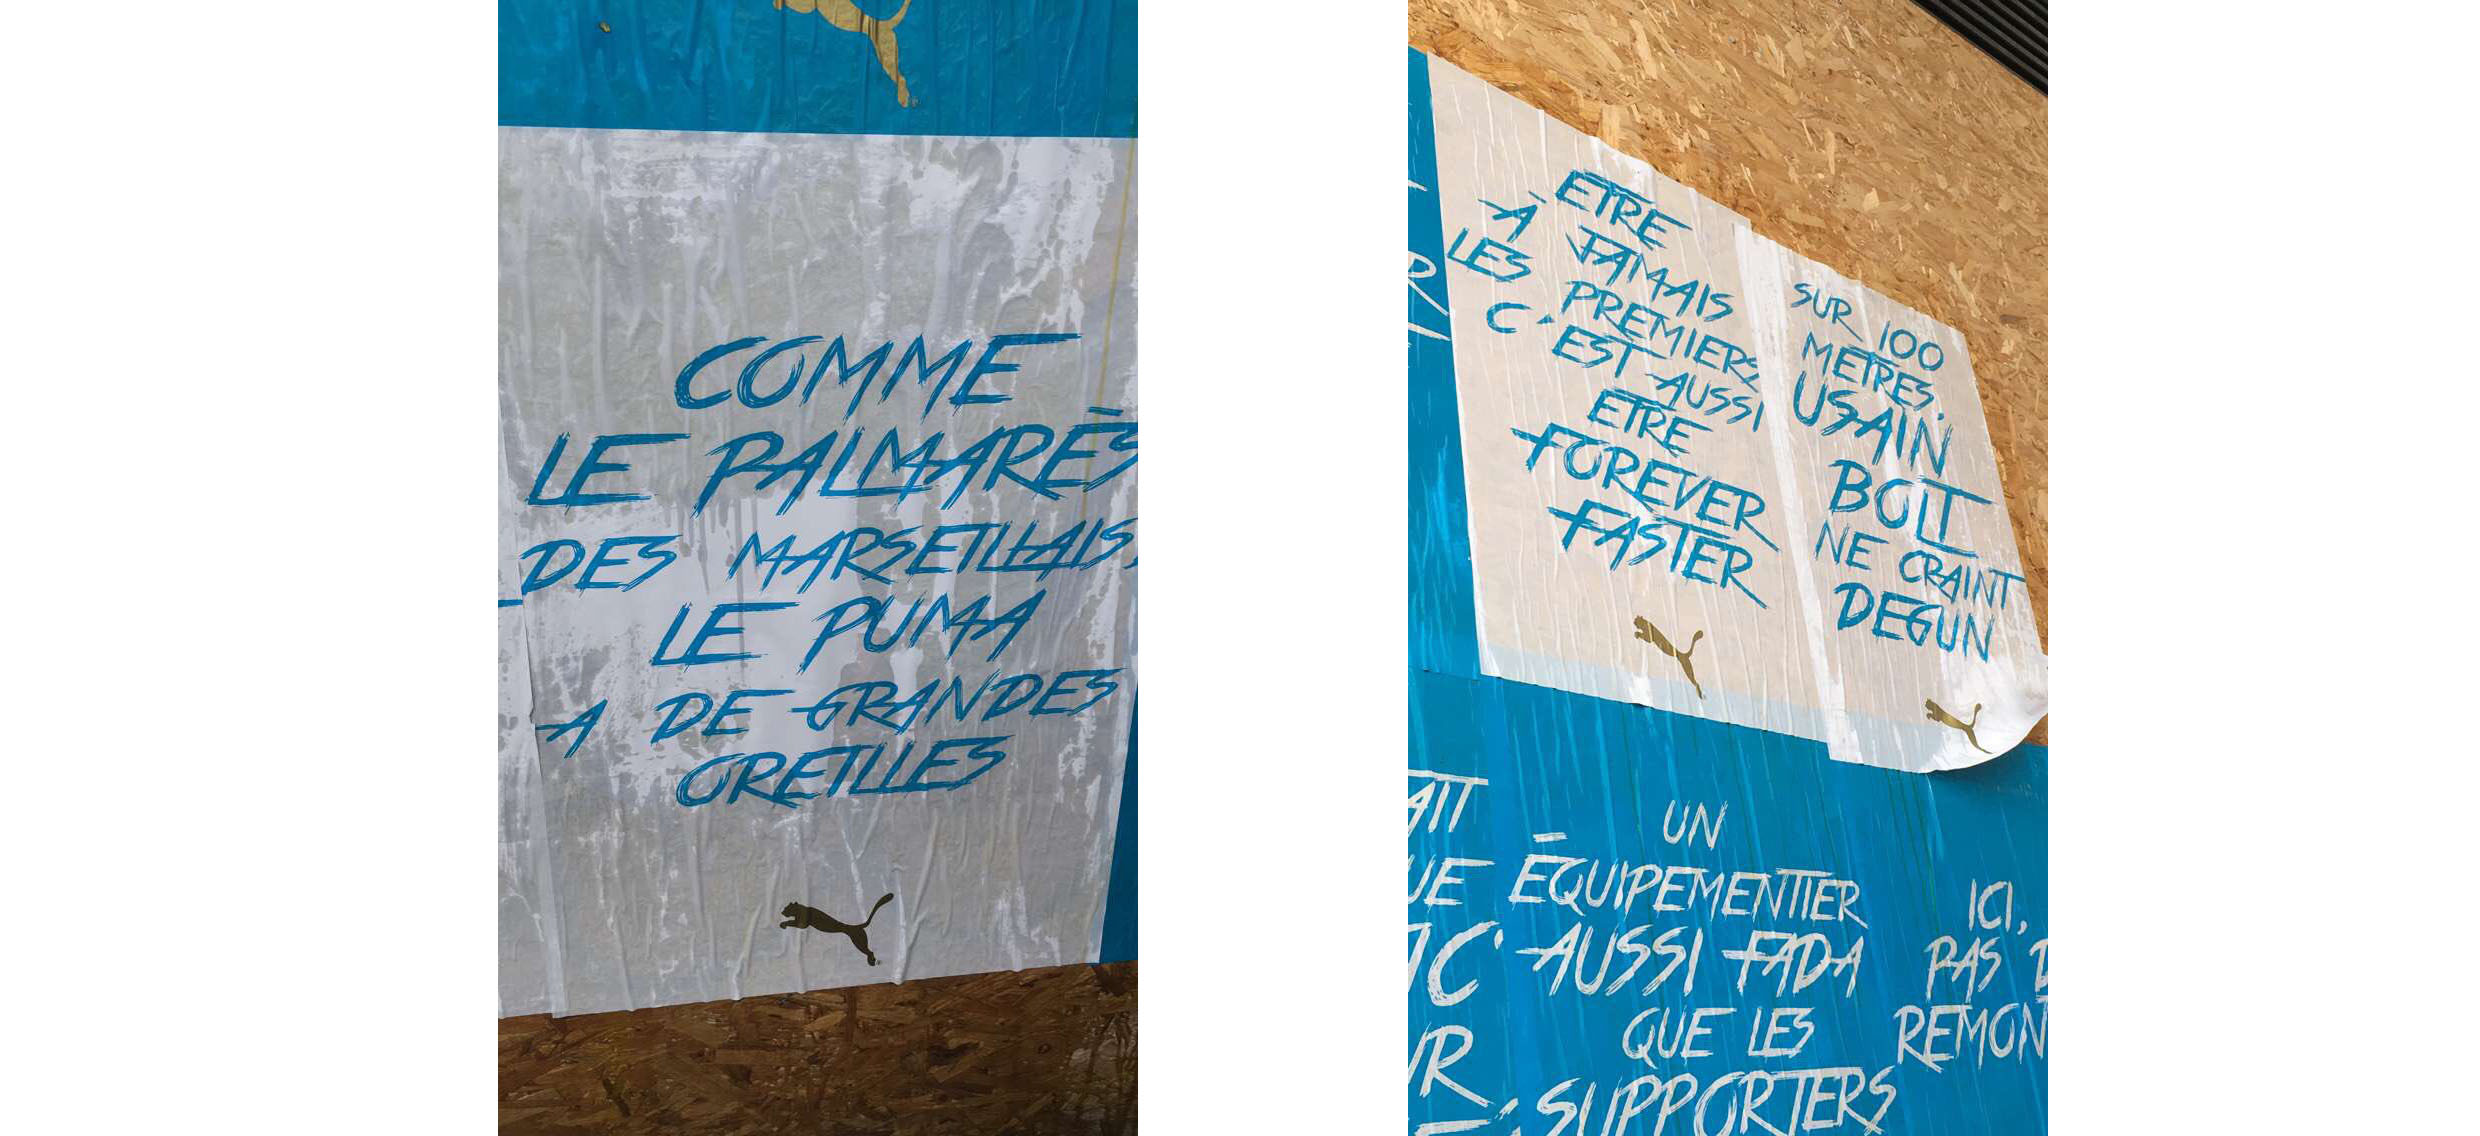 COMME
LE PALMARÈS
DES MARSEILLAIS,
LE PUMA
A DE GRANDES
OREILLES
ETRE
À JAMAIS
LES PREMIERS
C'EST AUSSI
ETRE
FOREVER
FASTER
SUR 100
METRES,
USAIN
BOLT
NE CRAINT
DEGUN
UN
ÉQUIPEMENTIER
AUSSI FADA
QUE LES
SUPPORTERS
ICI,
PAS